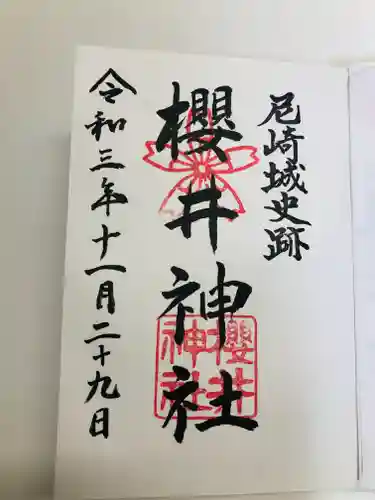 尼崎城史跡
櫻井神社
令和三年十一月二十九日
櫻井
神社